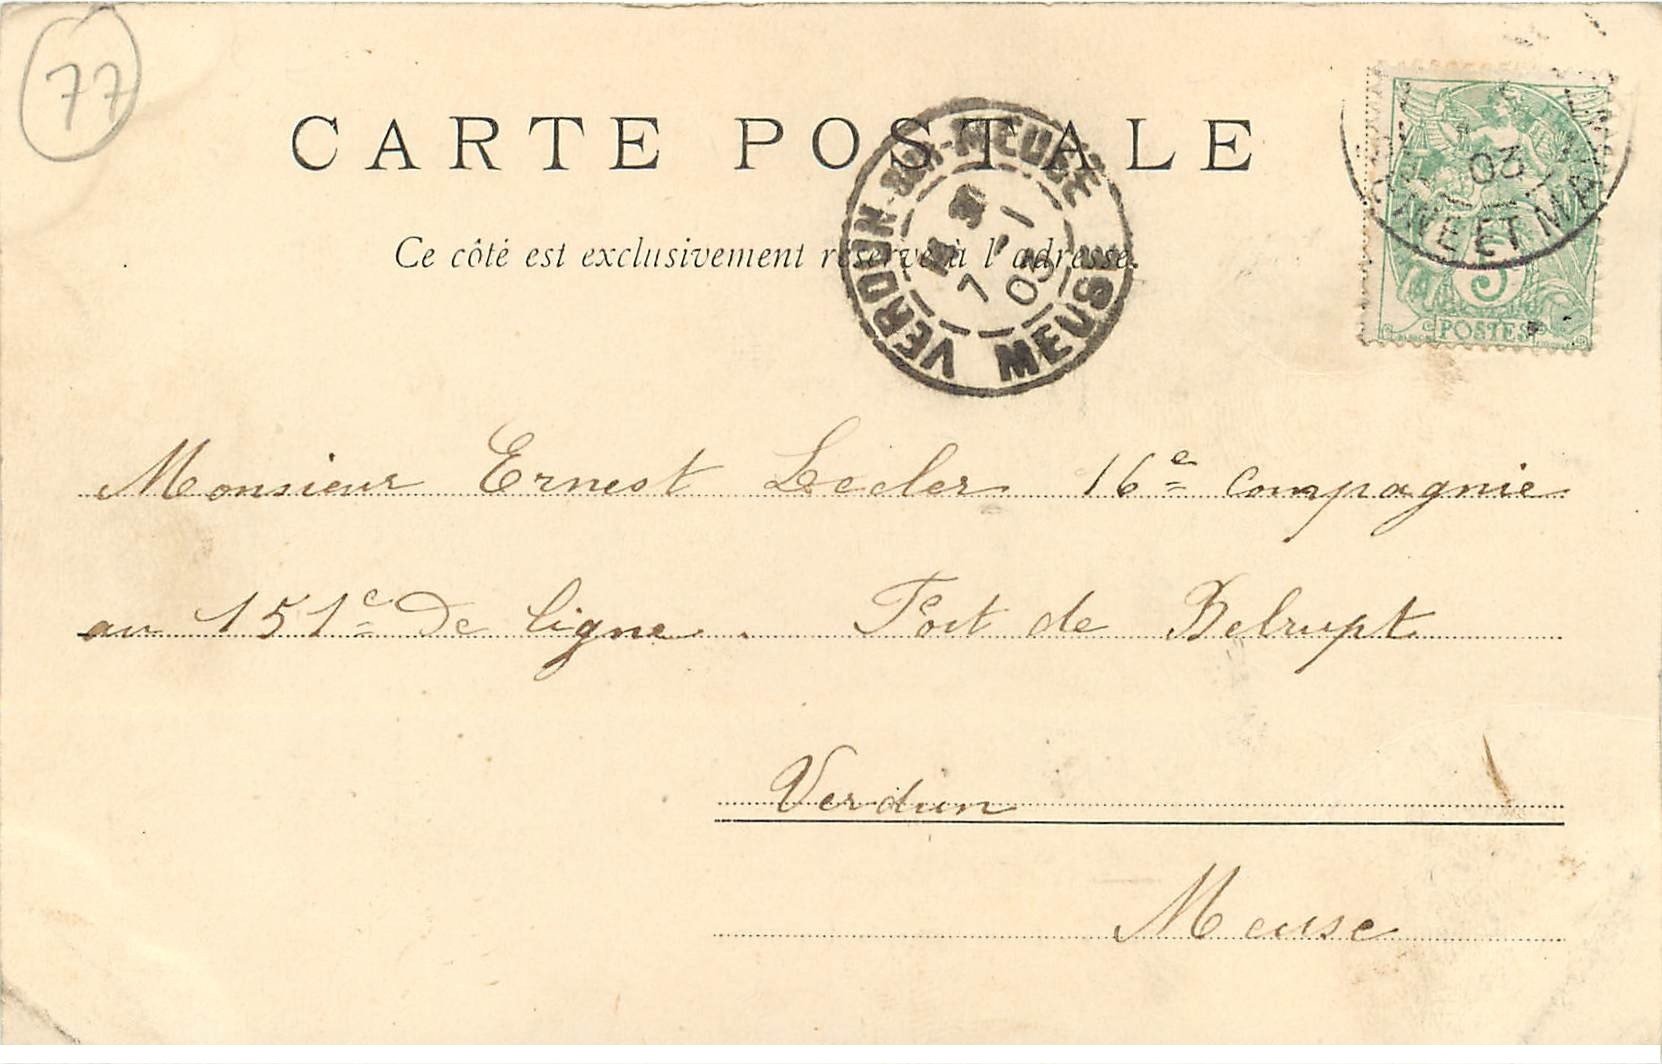 77
CARTE POSTALE
Ce côté est exclusivement réservé à l'adresse.
VERDUN-SUR-MEUSE
7 -1
05
MEUSE
20
NE ET M
5
POSTES
Monsieur Ernest Lecler 16e compagnie
au 151e De ligne. Fort de Belrupt
Verdun
Meuse